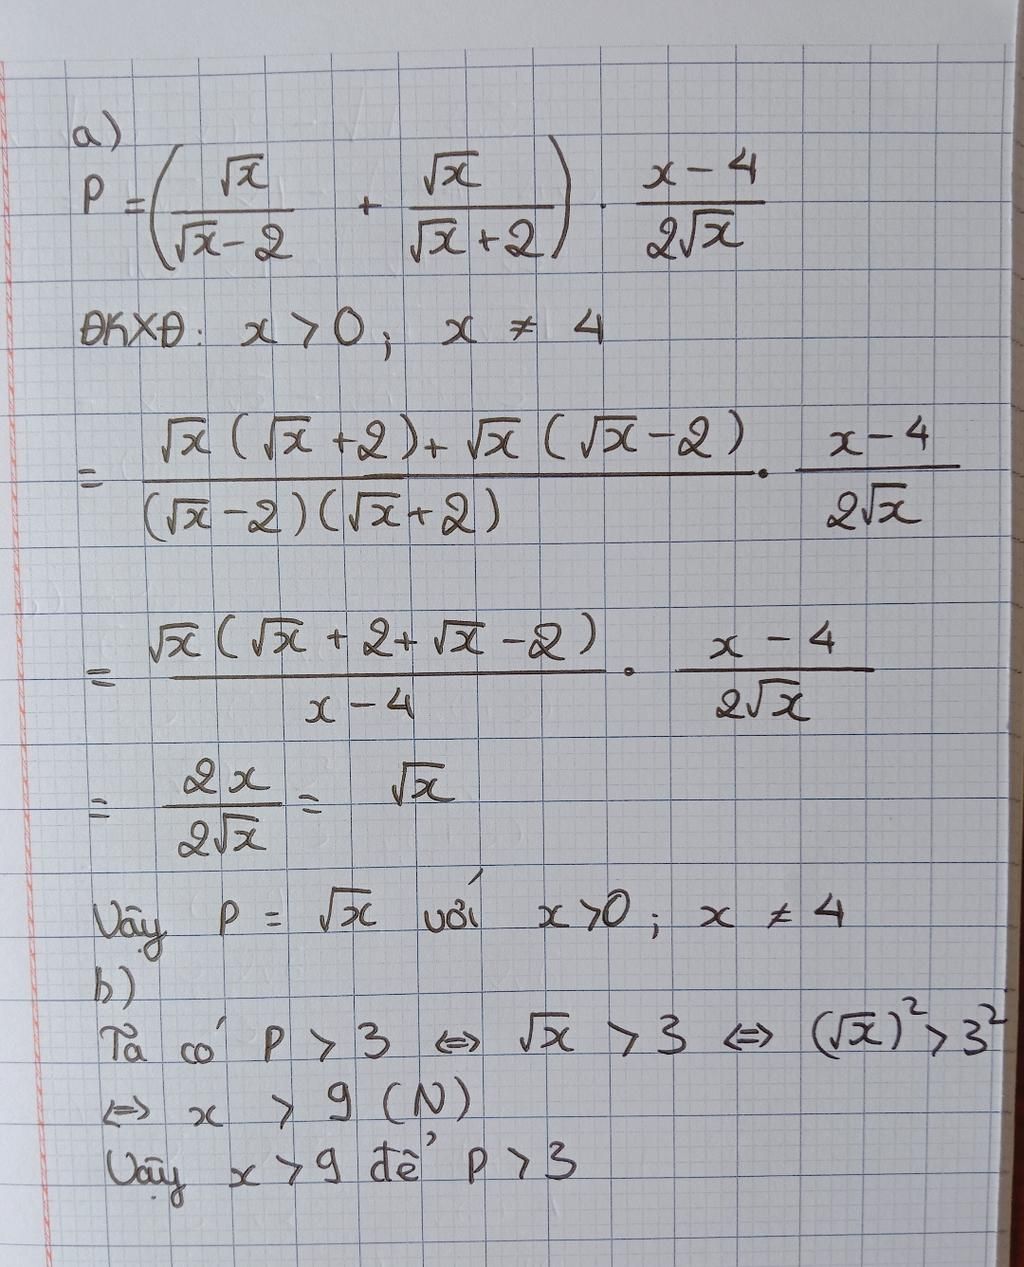 a)
P = (√x / (√x - 2) + √x / (√x + 2)) . (x - 4) / (2√x)
ĐKXĐ: x > 0 ; x ≠ 4
= (√x (√x + 2) + √x (√x - 2)) / ((√x - 2) (√x + 2)) . (x - 4) / (2√x)
= (√x (√x + 2 + √x - 2)) / (x - 4) . (x - 4) / (2√x)
= 2x / (2√x) = √x
Vậy P = √x với x > 0 ; x ≠ 4
b)
Ta có P > 3 ⇔ √x > 3 ⇔ (√x)² > 3²
⇔ x > 9 (N)
Vậy x > 9 để P > 3